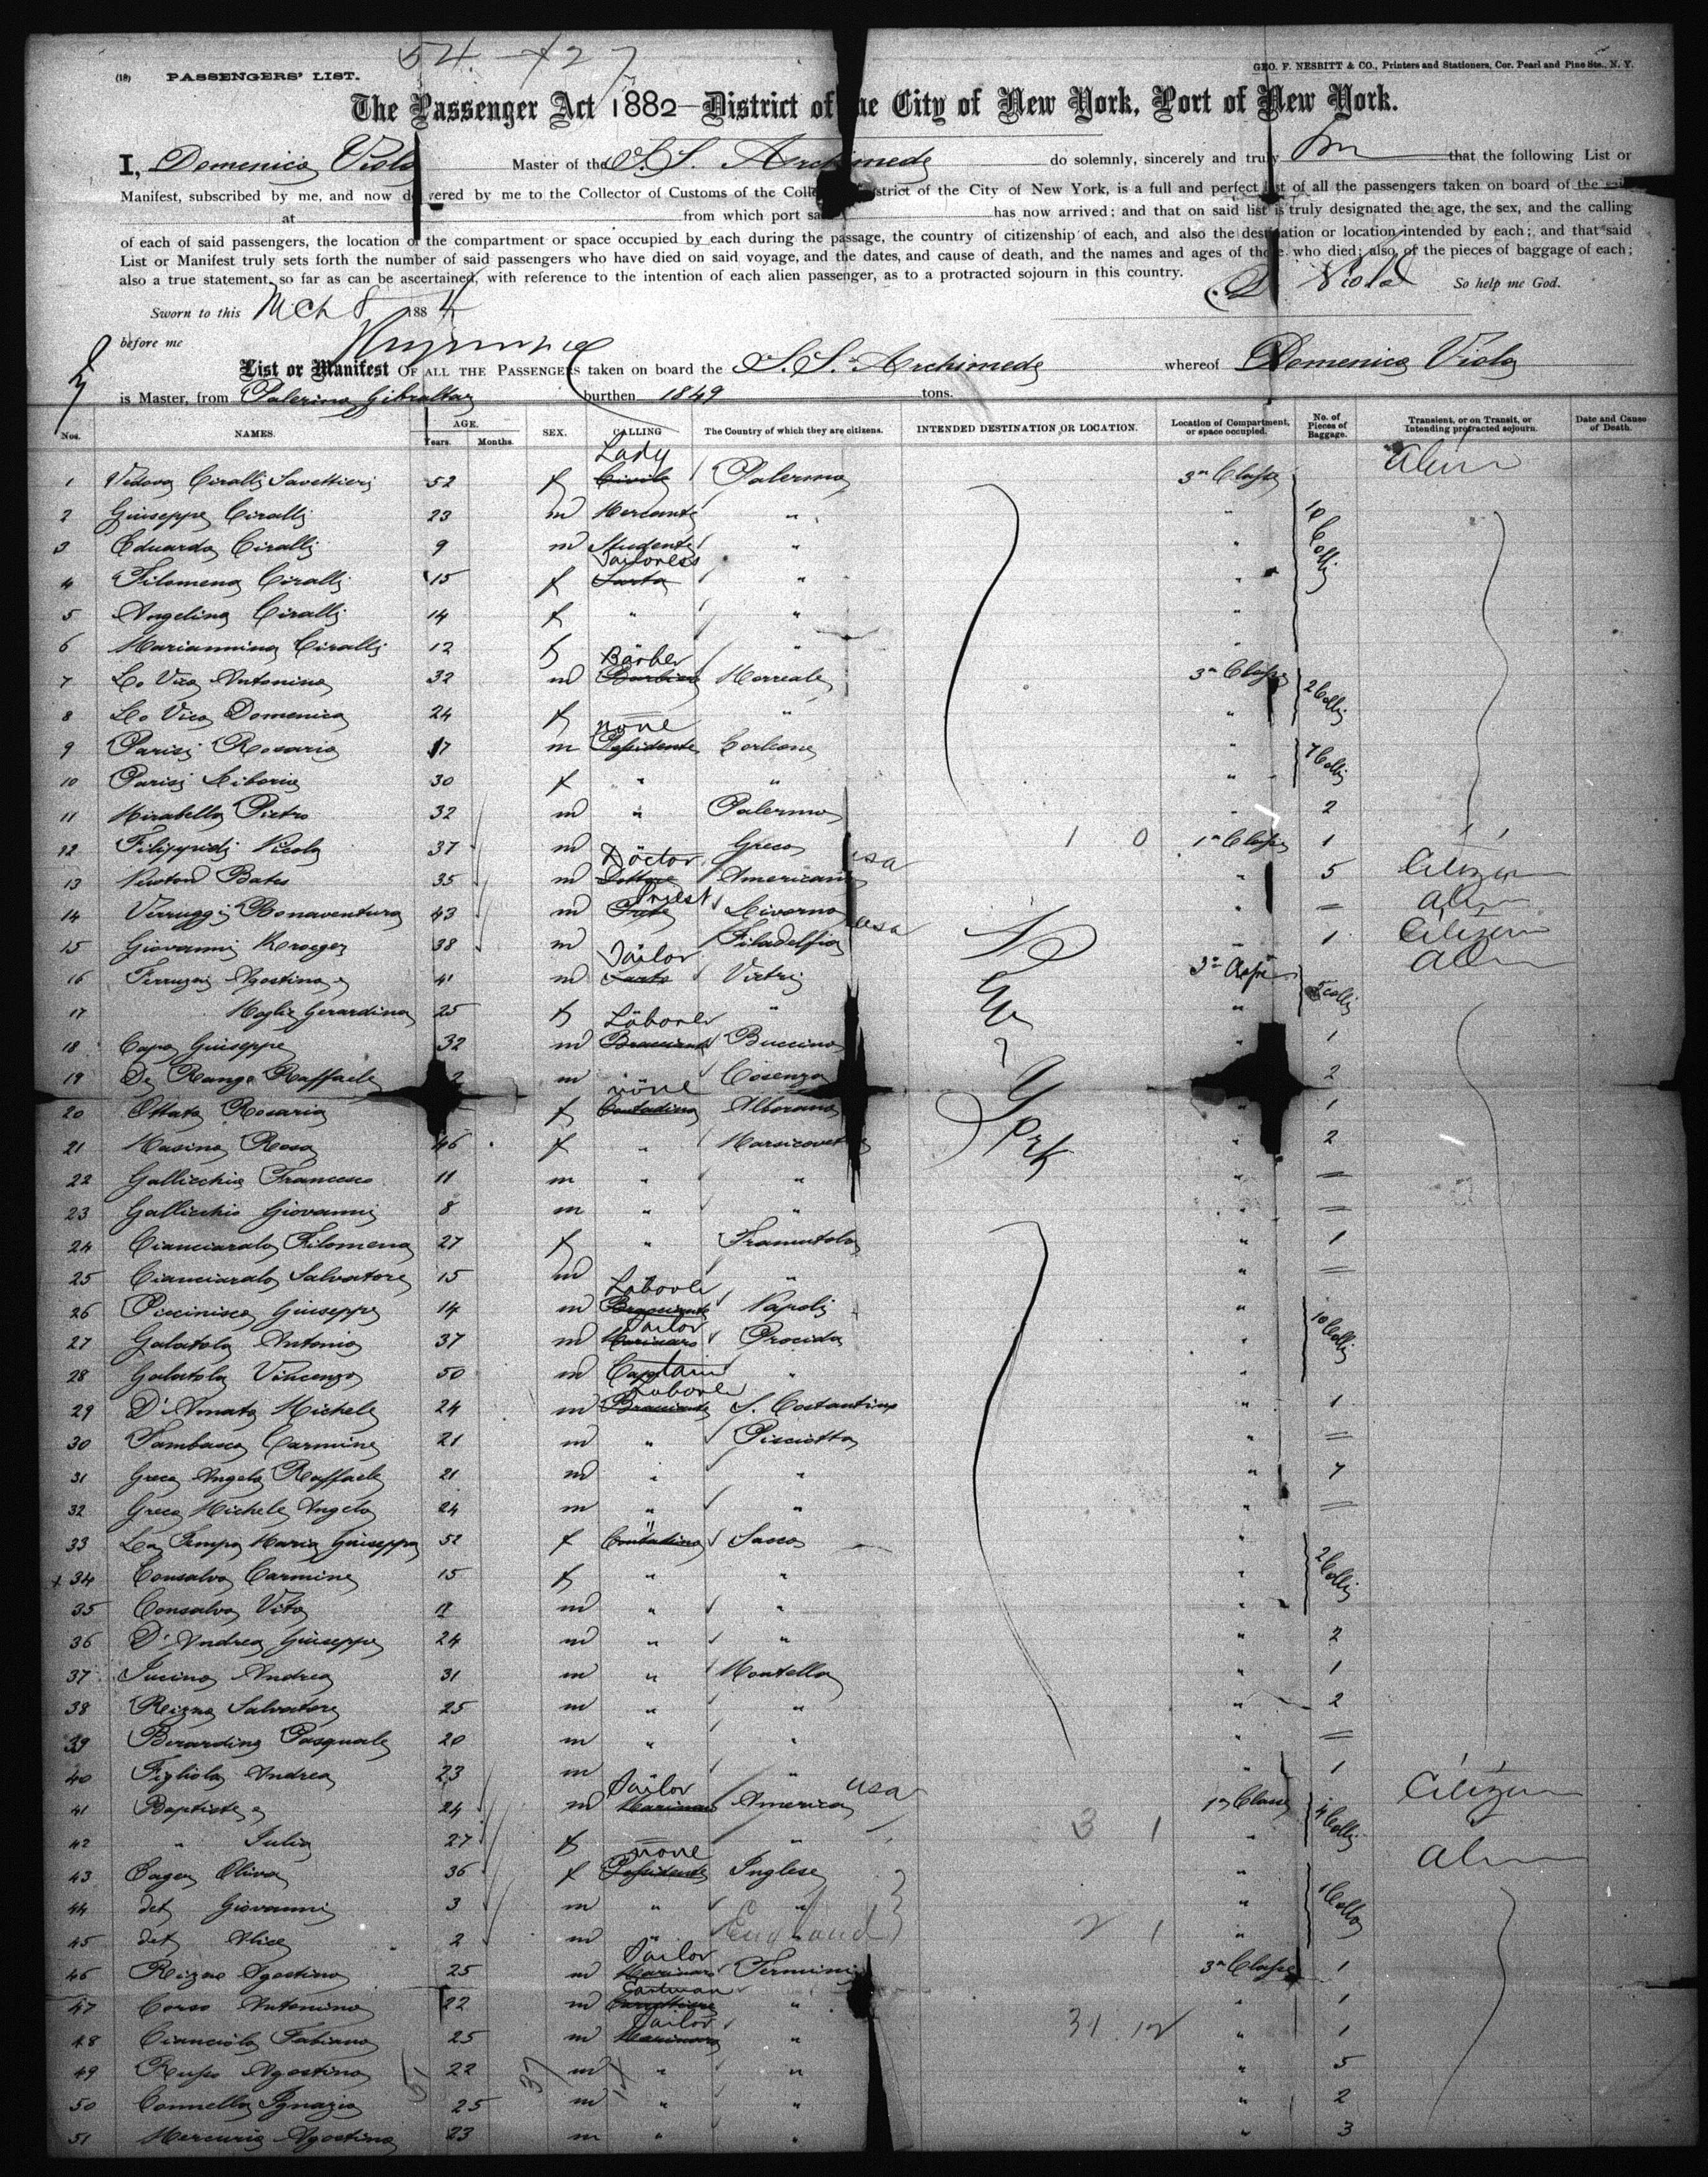 54 - 727
(18) PASSENGERS' LIST.
GEO. F. NESBITT & CO., Printers and Stationers, Cor. Pearl and Pine Sts., N. Y.
The Passenger Act 1882 - District of the City of New York, Port of New York.
I, Domenico Viola Master of the S.S. Archimede do solemnly, sincerely and truly that the following List or
Manifest, subscribed by me, and now delivered by me to the Collector of Customs of the Collection District of the City of New York, is a full and perfect list of all the passengers taken on board of the said
at from which port said has now arrived; and that on said list is truly designated the age, the sex, and the calling
of each of said passengers, the location of the compartment or space occupied by each during the passage, the country of citizenship of each, and also the destination or location intended by each; and that said
List or Manifest truly sets forth the number of said passengers who have died on said voyage, and the dates, and cause of death, and the names and ages of those who died; also, of the pieces of baggage of each;
also a true statement, so far as can be ascertained, with reference to the intention of each alien passenger, as to a protracted sojourn in this country.
D Viola So help me God.
Sworn to this Mch 8 1884
before me
List or Manifest OF ALL THE PASSENGERS taken on board the S.S. Archimede whereof Domenico Viola
is Master, from Palermo Gibraltar burthen 1849 tons.
Nos. NAMES. AGE. Years. Months. SEX. CALLING The Country of which they are citizens. INTENDED DESTINATION OR LOCATION. Location of Compartment, or space occupied. No. of Pieces of Baggage. Transient, or on Transit, or Intending protracted sojourn. Date and Cause of Death.
1 Vedova Ciralli Savettieri 52 f Civile Lady Palermo 3a Classe Alien
2 Giuseppe Ciralli 23 m Mercante " " 10 Colli
3 Eduardo Ciralli 9 m Studente " "
4 Filomena Ciralli 15 f Sarta Tailoress " "
5 Angelina Ciralli 14 f " " "
6 Mariannina Ciralli 12 f " "
7 Lo Vico Antonino 32 m Barbiere Barber Morreale 3a Classe 2 Colli
8 Lo Vico Domenica 24 f " "
9 Parisi Rosario 17 m Possidente none Corleone " 7 Colli
10 Parisi Liboria 30 f " " "
11 Mirabella Pietro 32 m " Palermo " 2
12 Filippidi Nicola 37 m Greco 1 0 1a Classe 1
13 Newton Bates 35 m Dottore Doctor Americano usa " 5 Citizen
14 Verruggi Bonaventura 43 m Frate Priest Livorno " = Alien
15 Giovanni Kroeger 38 m Filadelfia usa " 1 Citizen
16 Ferruzzi Agostino e 41 m Sarto Tailor Vietri 3a Classe 5 colli Alien
17 Moglie Gerardina 25 f " "
18 Capo Giuseppe 32 m Bracciante Laborer Buccino " 1
19 De Range Raffaele 2 m Cosenza 2
20 Ottato Rosaria f Contadina none Alborano " 1
21 Masino Rosa 46 f " Marsicovet " 2
22 Gallicchio Francesco 11 m " " " =
23 Gallicchio Giovanni 8 m " " " =
New York
24 Cianciaralo Filomena 27 f " Tramutola " 1
25 Cianciarulo Salvatore 15 m " " =
26 Piccinisco Giuseppe 14 m Bracciante Laborer Napoli " 10 Colli
27 Galatola Antonio 37 m Marinaro Sailor Procida "
28 Galatola Vincenzo 50 m Captain "
29 D'Amato Michele 24 m Bracciante Laborer S. Costantino " 1
30 Tambasco Carmine 21 m " Pisciotta " =
31 Greco Angelo Raffaele 21 m " " " 7
32 Greco Michele Angelo 24 m " " " =
33 La Timpa Maria Giuseppa 52 f Contadina " Sacco " 2 Colli
34 Consalvo Carmine 15 f " " "
35 Consalvo Vito 11 m " " "
36 D'Andrea Giuseppe 24 m " " " 2
37 Iucino Andrea 31 m " Montella " 1
38 Reizna Salvatore 25 m " " " 2
39 Berardino Pasquale 20 m " " " =
40 Figliola Andrea 23 m " " 1
41 Baptiste e 24 m Marinaro Sailor America usa 1a Classe 4 Colli Citizen
42 " Julia 27 f " 3 1 "
43 Eager Oliva 36 f Possidente none Inglese " 1 Collo Alien
44 det Giovanni 3 m " " "
45 det Alice 2 m " England 2 1 "
46 Reizne Agostino 25 m Marinaro Sailor Termini 3a Classe 1
47 Corso Antonino 22 m Carrettiere Cartman " " 1
48 Cianciolo Fabiano 25 m Marinaro Sailor " 31 12 " 1
49 Rufso Agostino 22 m " " " 5
50 Connella Ignazio 25 m " " " 2
51 Mercurio Agostino 23 m " " " 3
51 37 14